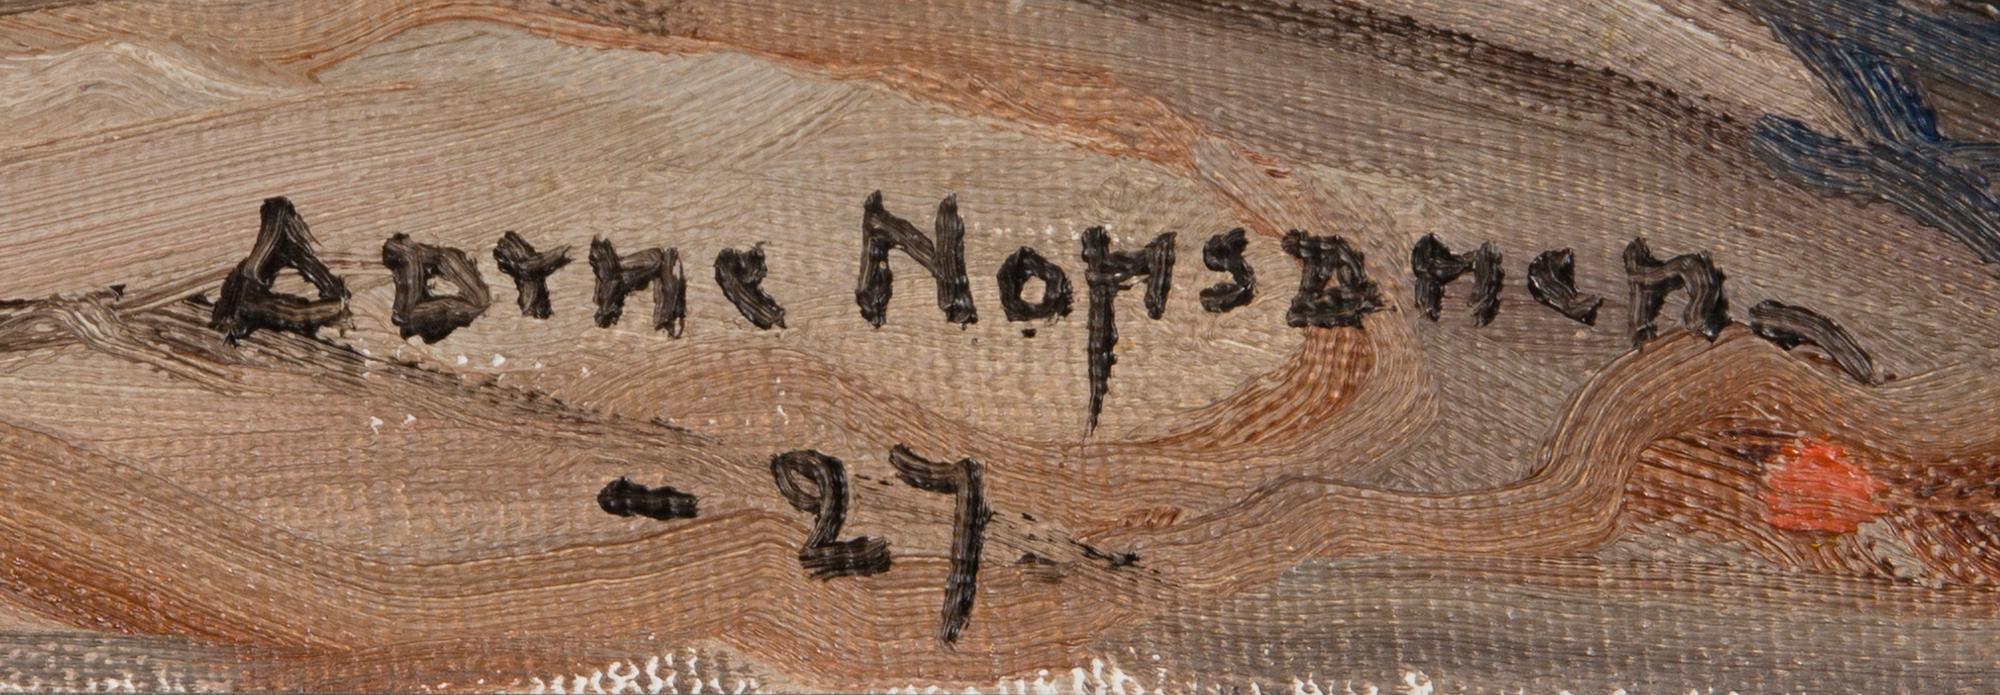 Aarne Nopsanen,
-27